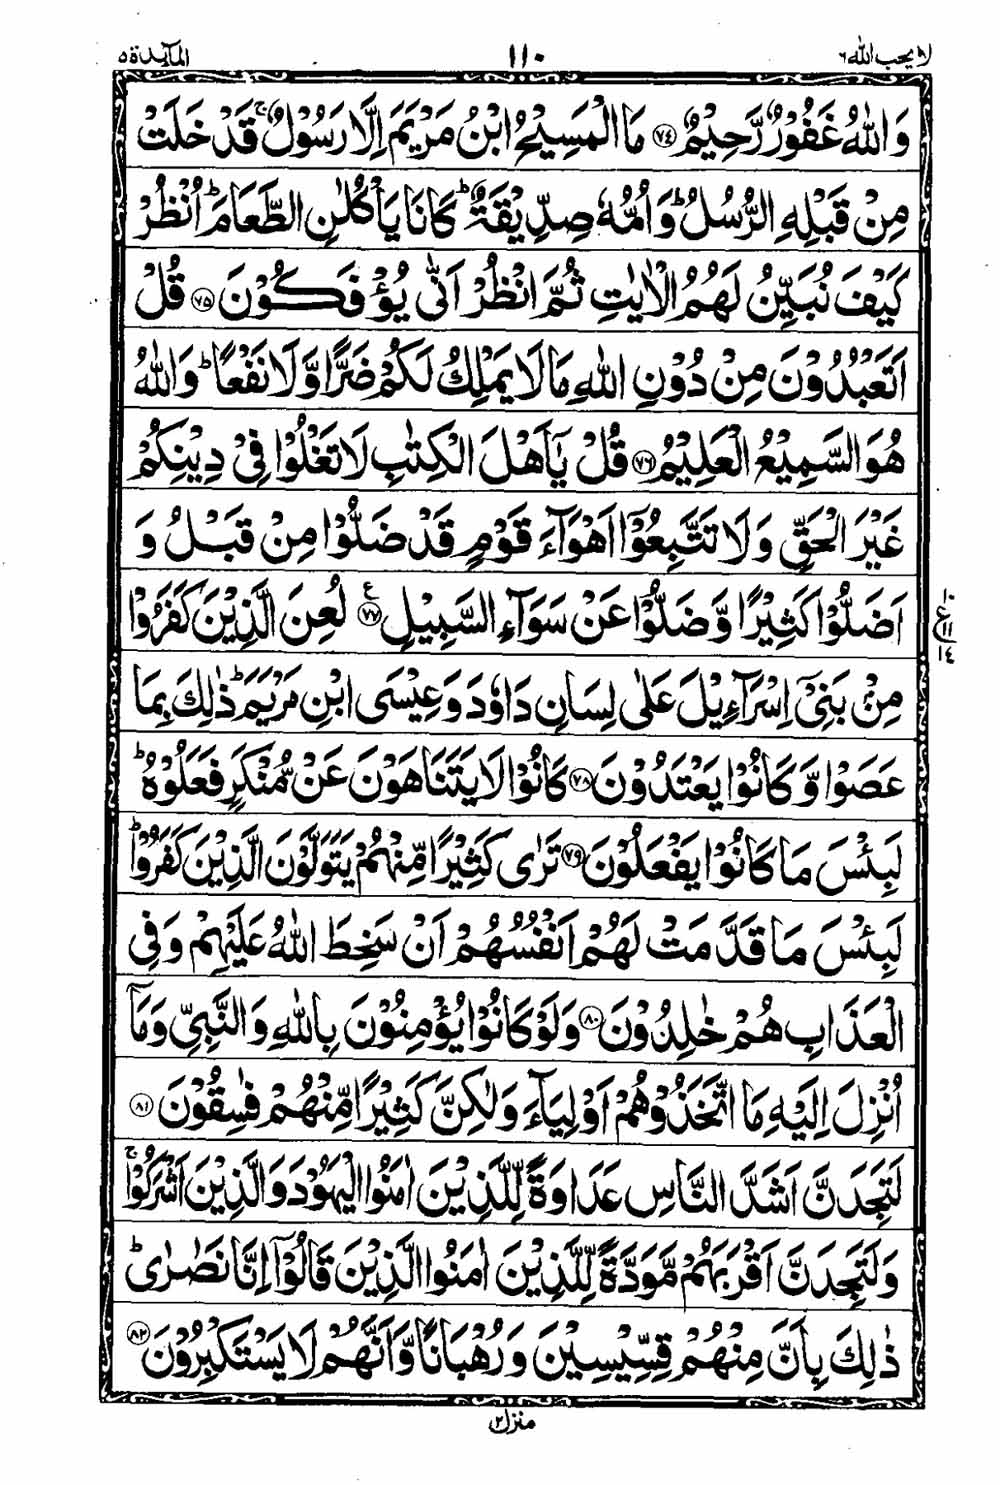 لا یحب الله ٦
١١٠
المآئدة ٥
وَاللّٰهُ غَفُوْرٌ رَّحِيْمٌ ﴿٧٤﴾ مَا الْمَسِيْحُ ابْنُ مَرْيَمَ اِلَّا رَسُوْلٌ ۚ قَدْ خَلَتْ
مِنْ قَبْلِهِ الرُّسُلُ ؕ وَاُمُّهٗ صِدِّيْقَةٌ ؕ كَانَا يَاْكُلٰنِ الطَّعَامَ ؕ اُنْظُرْ
كَيْفَ نُبَيِّنُ لَهُمُ الْاٰيٰتِ ثُمَّ انْظُرْ اَنّٰى يُؤْفَكُوْنَ ﴿٧٥﴾ قُلْ
اَتَعْبُدُوْنَ مِنْ دُوْنِ اللّٰهِ مَا لَا يَمْلِكُ لَكُمْ ضَرًّا وَّلَا نَفْعًا ؕ وَاللّٰهُ
هُوَ السَّمِيْعُ الْعَلِيْمُ ﴿٧٦﴾ قُلْ يٰۤاَهْلَ الْكِتٰبِ لَا تَغْلُوْا فِيْ دِيْنِكُمْ
غَيْرَ الْحَقِّ وَلَا تَتَّبِعُوْۤا اَهْوَآءَ قَوْمٍ قَدْ ضَلُّوْا مِنْ قَبْلُ وَ
اَضَلُّوْا كَثِيْرًا وَّضَلُّوْا عَنْ سَوَآءِ السَّبِيْلِ ﴿٧٧﴾ ع لُعِنَ الَّذِيْنَ كَفَرُوْا
١٠
ع ١١
١٤
مِنْۢ بَنِيْۤ اِسْرَآءِيْلَ عَلٰى لِسَانِ دَاوٗدَ وَعِيْسَى ابْنِ مَرْيَمَ ؕ ذٰلِكَ بِمَا
عَصَوْا وَّكَانُوْا يَعْتَدُوْنَ ﴿٧٨﴾ كَانُوْا لَا يَتَنَاهَوْنَ عَنْ مُّنْكَرٍ فَعَلُوْهُ ؕ
لَبِئْسَ مَا كَانُوْا يَفْعَلُوْنَ ﴿٧٩﴾ تَرٰى كَثِيْرًا مِّنْهُمْ يَتَوَلَّوْنَ الَّذِيْنَ كَفَرُوْا ؕ
لَبِئْسَ مَا قَدَّمَتْ لَهُمْ اَنْفُسُهُمْ اَنْ سَخِطَ اللّٰهُ عَلَيْهِمْ وَفِي
الْعَذَابِ هُمْ خٰلِدُوْنَ ﴿٨٠﴾ وَلَوْ كَانُوْا يُؤْمِنُوْنَ بِاللّٰهِ وَالنَّبِيِّ وَمَاۤ
اُنْزِلَ اِلَيْهِ مَا اتَّخَذُوْهُمْ اَوْلِيَآءَ وَلٰكِنَّ كَثِيْرًا مِّنْهُمْ فٰسِقُوْنَ ﴿٨١﴾
لَتَجِدَنَّ اَشَدَّ النَّاسِ عَدَاوَةً لِّلَّذِيْنَ اٰمَنُوا الْيَهُوْدَ وَالَّذِيْنَ اَشْرَكُوْا ۚ
وَلَتَجِدَنَّ اَقْرَبَهُمْ مَّوَدَّةً لِّلَّذِيْنَ اٰمَنُوا الَّذِيْنَ قَالُوْۤا اِنَّا نَصٰرٰى ؕ
ذٰلِكَ بِاَنَّ مِنْهُمْ قِسِّيْسِيْنَ وَرُهْبَانًا وَّاَنَّهُمْ لَا يَسْتَكْبِرُوْنَ ﴿٨٢﴾
منزل ٢